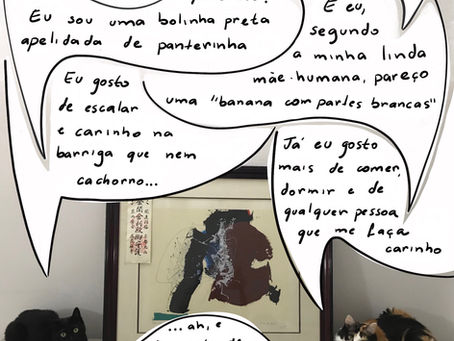 Eu sou uma bolinha preta
apelidada de panterinha
E eu,
segundo
a minha linda
mãe-humana, pareço
uma "banana com partes brancas"
Eu gosto
de escalar
e carinho na
barriga que nem
cachorro...
Já eu gosto
mais de comer,
dormir e de
qualquer pessoa
que me faça
carinho
...ah, e